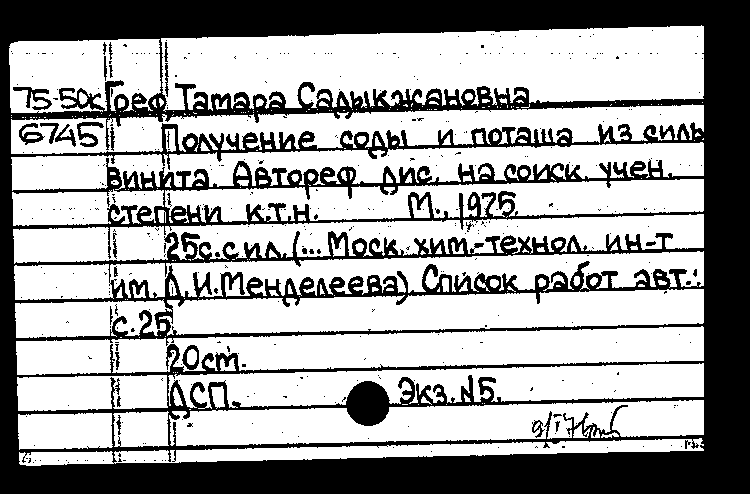 75-50к Греф, Тамара Садыкжановна
6745 Получение соды и поташа из силь
винита. Автореф. дис. на соиск. учен.
степени к.т.н. М., 1975.
25с. с ил. (... Моск. хим.-технол. ин-т
им. Д.И. Менделеева) Список работ авт.:
с. 25.
20см.
ДСП. Экз. №5.